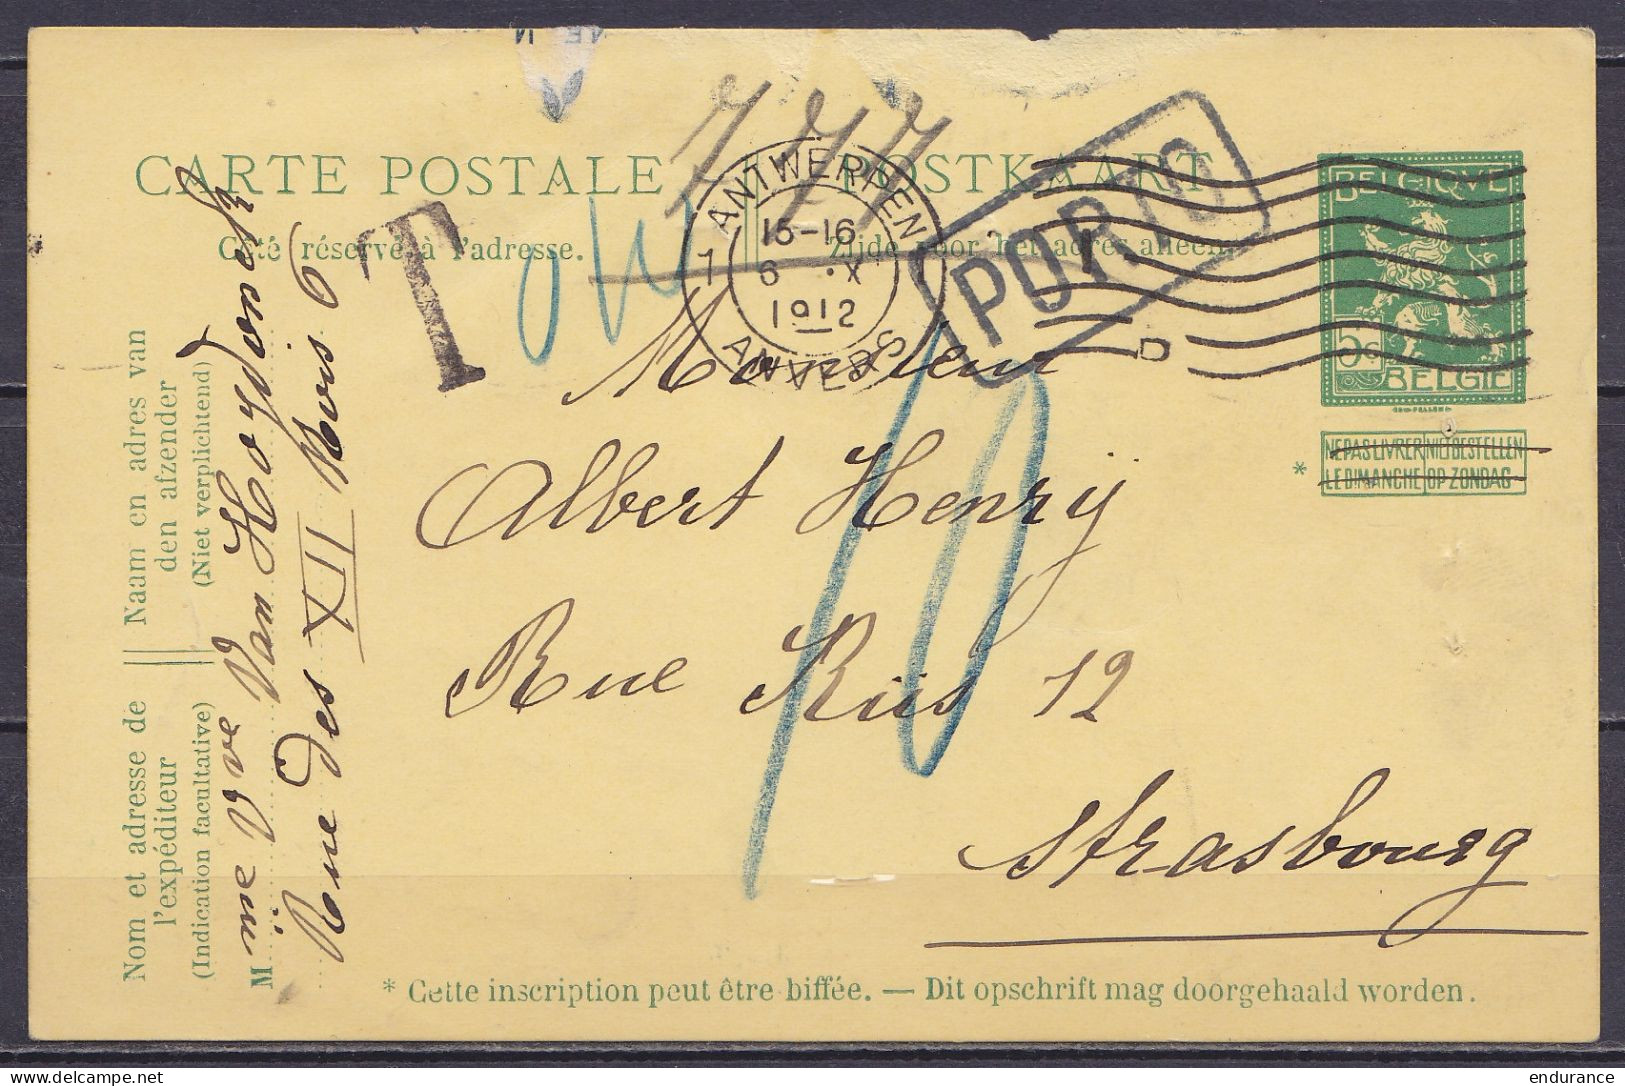 777
CARTE POSTALE POSTKAART
Côté réservé à l'adresse. Zijde voor het adres alleen.
T
PORTO
1 ANTWERPEN
15-16
6 X
1912
ANVERS
BELGIQUE
5c
BELGIE
NE PAS LIVRER NIET BESTELLEN
* LE DIMANCHE OP ZONDAG
Monsieur
Albert Henry
10
Rue Küs 12
Strasbourg
Naam en adres van
den afzender
(Niet verplichtend)
Nom et adresse de
l'expéditeur
(Indication facultative)
Mme Vve Van Hoydonck
Rue des XII Mois 6
* Cette inscription peut être biffée. — Dit opschrift mag doorgehaald worden.
delcampe.net
endurance